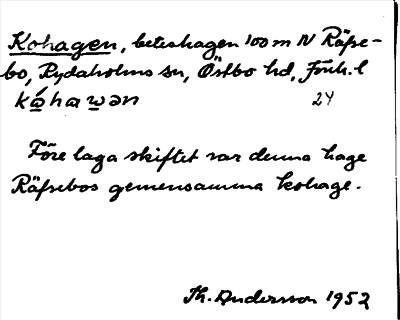 Kohagen, beteshagen 100 m N Räfse-
bo, Rydaholms sn, Östbo hd, Jönk. l
kó̲hɑw̲ən 24
Före laga skiftet var denna hage
Räfsebos gemensamma kohage.
Th. Andersson 1952